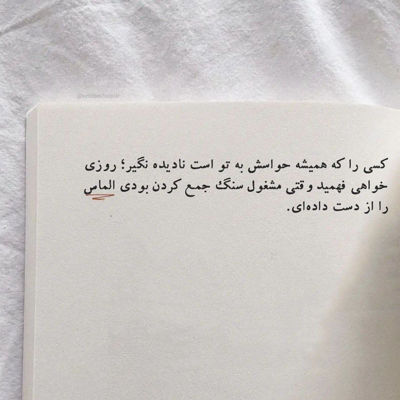 کسی را که همیشه حواسش به تو است نادیده نگیر؛ روزی
خواهی فهمید وقتی مشغول سنگ جمع کردن بودی الماس
را از دست داده‌ای.